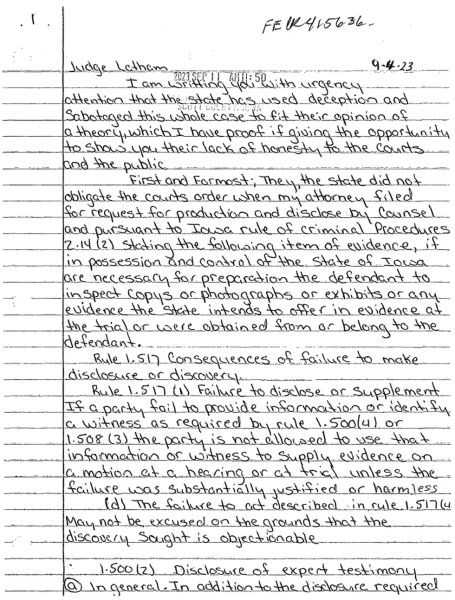 . 1 .
FECR415636
Judge Latham
9-4-23
2023 SEP 11 AM 11:50
I am writting you with urgency
attention that the state has used deception and
Sabotaged this whole case to fit their opinion of
a theory, which I have proof if giving the opportunity
to show you their lack of honesty to the courts
and the public
First and Formost; They, the state did not
obligate the courts order when my attorney filed
for request for production and disclose by Counsel
and pursuant to Iowa rule of criminal Procedures
2.14 (2) stating the following item of evidence, if
in possession and control of the State of Iowa
are necessary for preparation the defendant to
inspect copys or photographs or exhibits or any
evidence the state intends to offer in evidence at
the trial or were obtained from or belong to the
defendant.
Rule 1.517 Consequences of failure to make
disclosure or discovery.
Rule 1.517 (1) Failure to disclose or supplement
If a party fail to provide information or identify
a witness as required by rule 1.500(4) or
1.508 (3) the party is not allowed to use that
information or witness to supply evidence on
a motion at a hearing or at trial unless the
failure was substantially justified or harmless
(d) The failure to act described in rule 1.517(4
May not be excused on the grounds that the
discovery sought is objectionable
1.500(2) Disclosure of expert testimony
(a) In general. In addition to the disclosure required